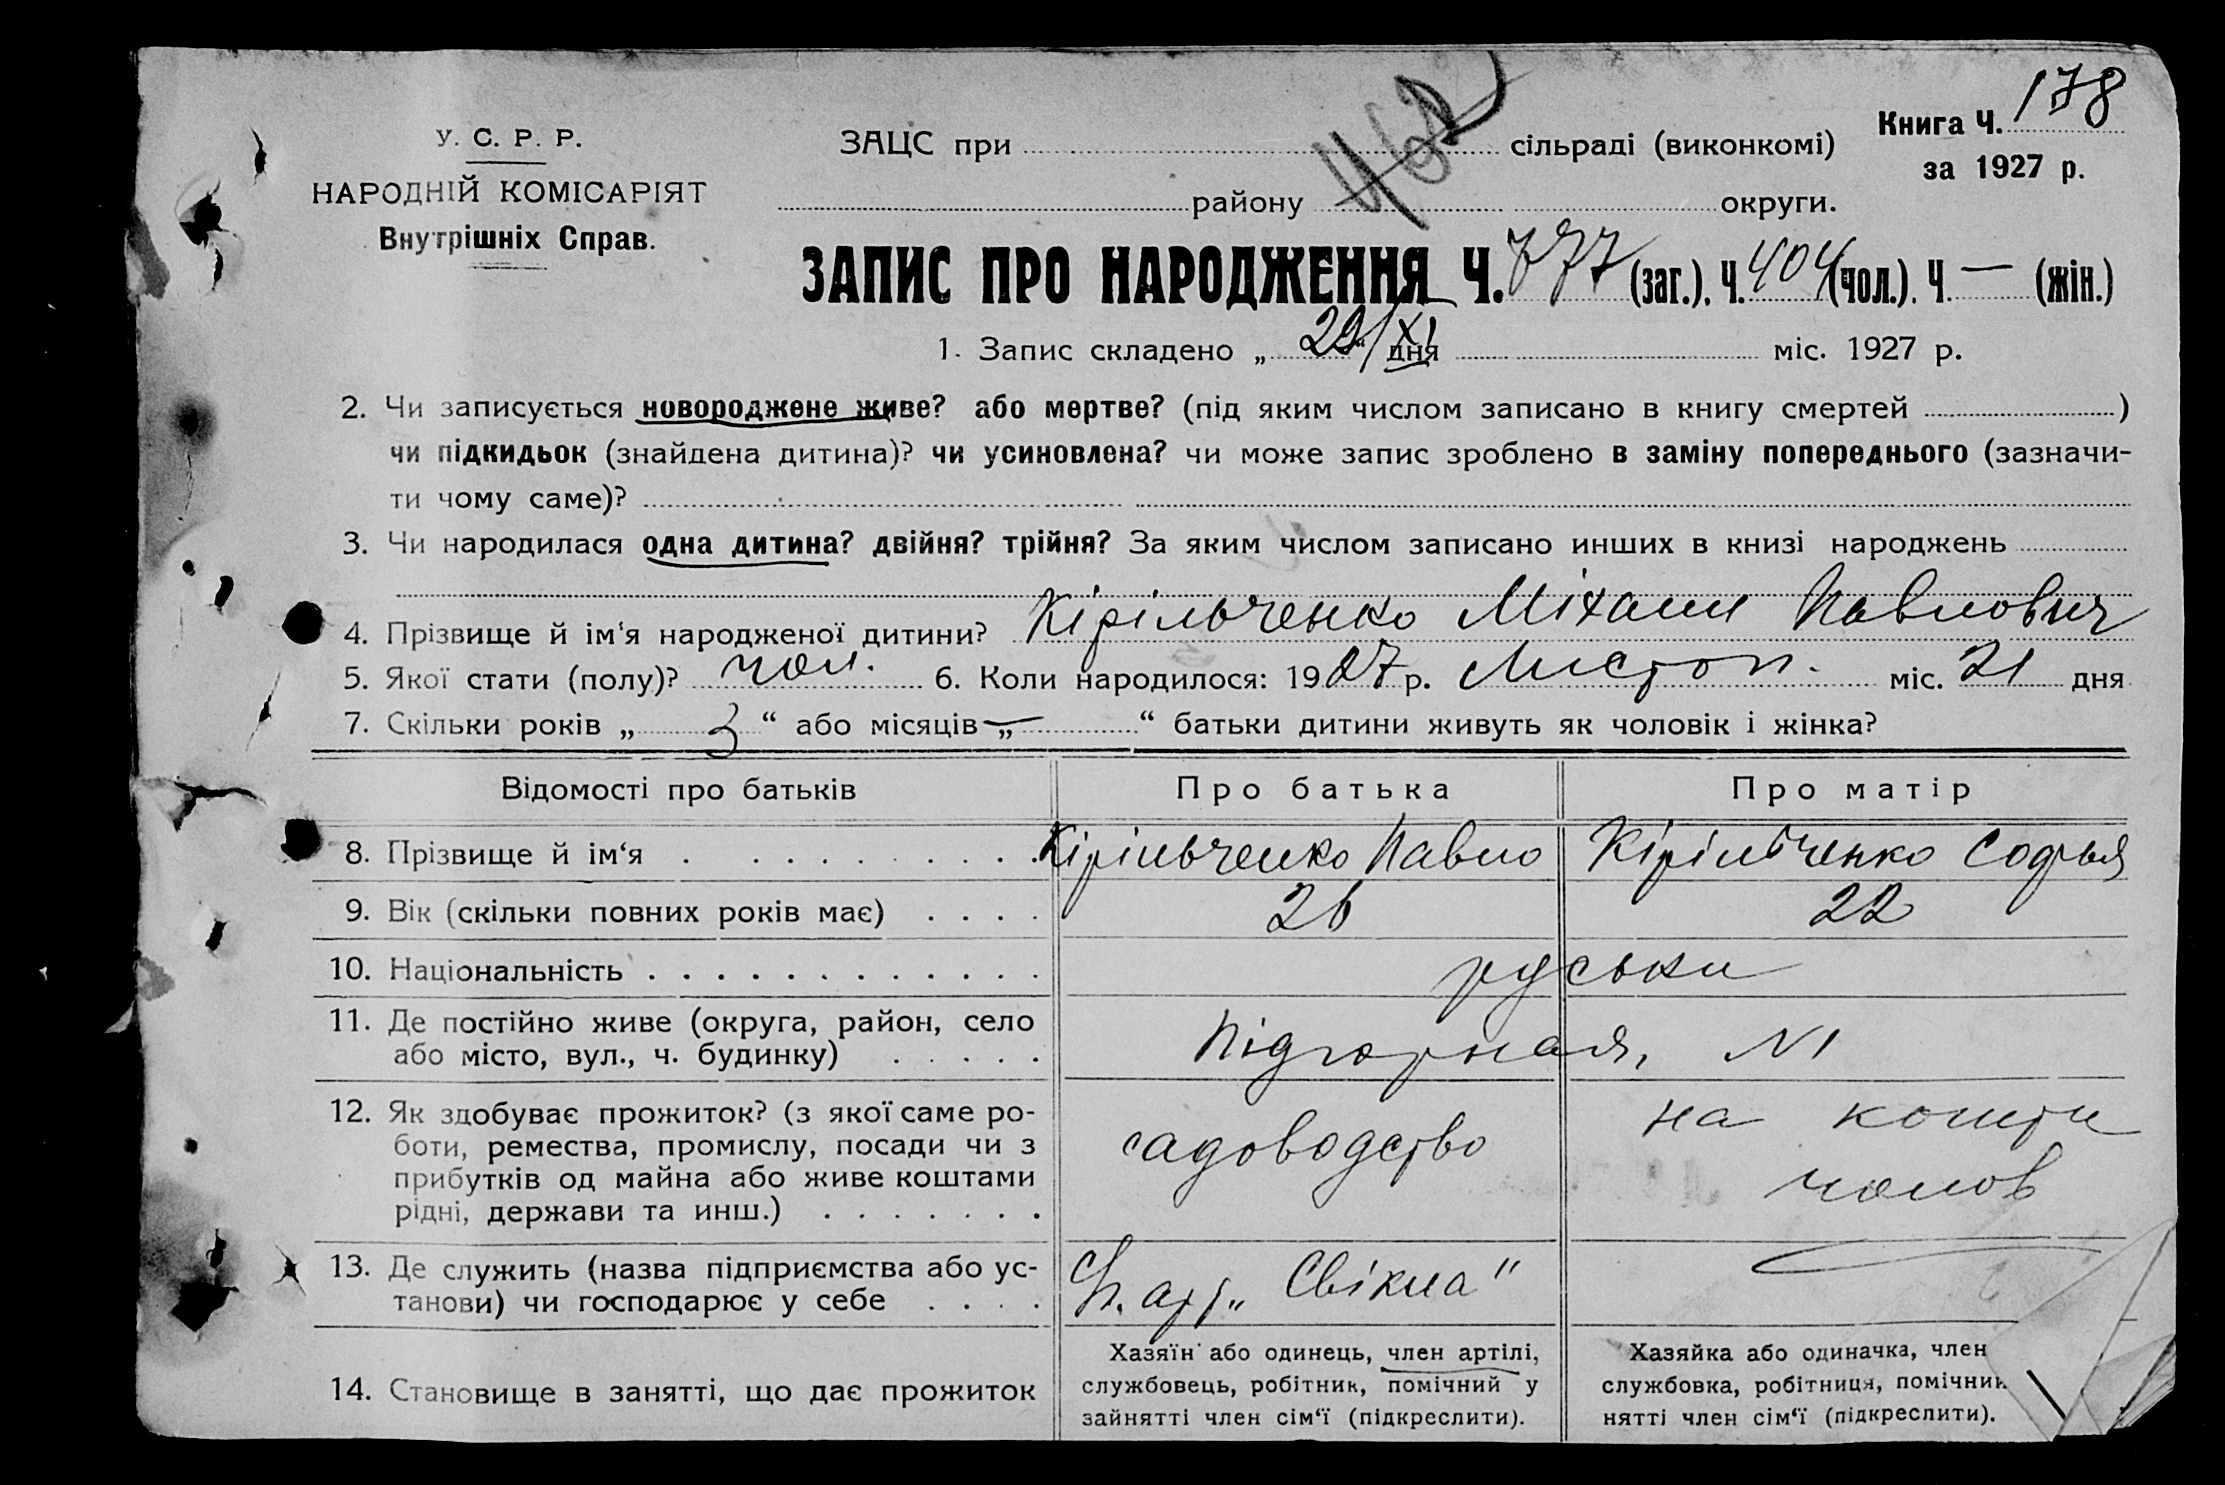 462
Книга Ч. 178
за 1927 р.
У. С. Р. Р.
НАРОДНІЙ КОМІСАРІЯТ
Внутрішніх Справ.
ЗАЦС при сільраді (виконкомі)
району округи.
ЗАПИС ПРО НАРОДЖЕННЯ Ч. 777 (заг.). Ч. 404 (чол.). Ч. — (жін.)
1. Запис складено „ 29/XI “ дня міс. 1927 р.
2. Чи записується новороджене живе? або мертве? (під яким числом записано в книгу смертей )
чи підкидьок (знайдена дитина)? чи усиновлена? чи може запис зроблено в заміну попереднього (зазначи-
ти чому саме)?
3. Чи народилася одна дитина? двійня? трійня? За яким числом записано инших в книзі народжень
4. Прізвище й ім‘я народженої дитини? Кірільченко Міхаил Павлович
5. Якої стати (полу)? чол. 6. Коли народилося: 1927 р. Листоп. міс. 21 дня
7. Скільки років „ 3 “ або місяців „ — “ батьки дитини живуть як чоловік і жінка?
Відомості про батьків Про батька Про матір
8. Прізвище й ім‘я Кірільченко Павло Кірільченко Софья
9. Вік (скільки повних років має) 26 22
10. Національність руськи
11. Де постійно живе (округа, район, село
або місто, вул., ч. будинку) Підгорная, N1
12. Як здобуває прожиток? (з якої саме ро-
боти, ремества, промислу, посади чи з
прибутків од майна або живе коштами
рідні, держави та инш.) садоводство на кошти
чолов
13. Де служить (назва підприємства або ус-
танови) чи господарює у себе арт „Свікла“
14. Становище в занятті, що дає прожиток
Хазяїн або одинець, член артілі,
службовець, робітник, помічний у
зайнятті член сім‘ї (підкреслити).
Хазяйка або одиначка, член
службовка, робітниця, помічник
нятті член сім‘ї (підкреслити).